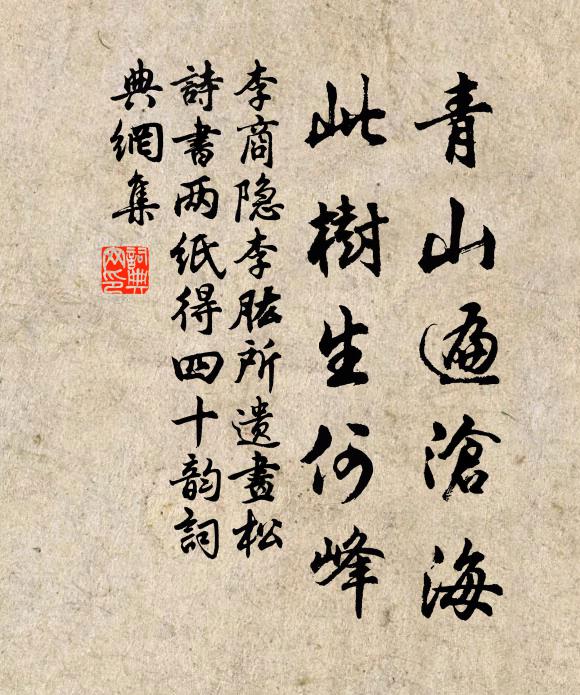 青山遍滄海
此樹生何峰
李商隐李肱所遺畫松
詩書两紙得四十韵詞
典網集
詞典網印